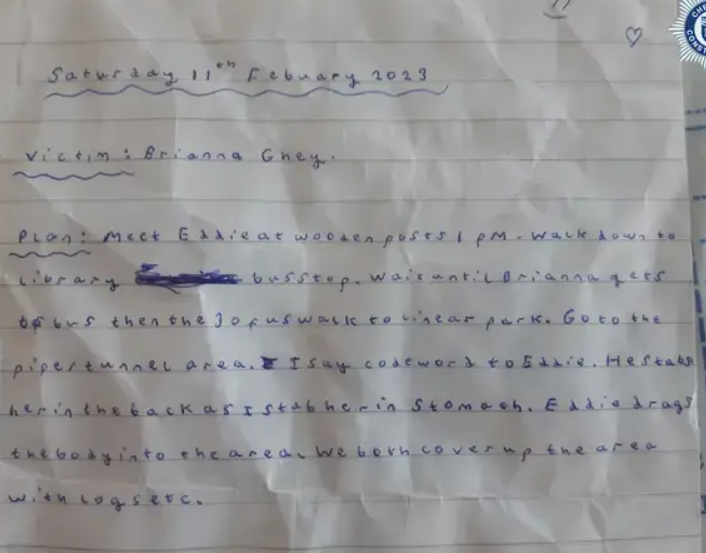 Saturday 11th Febuary 2023
Victim: Brianna Ghey.
Plan: Meet Eddie at wooden posts 1 pm. Walk down to
library bus stop. Wait until Brianna gets
of bus then the 3 of us walk to linear park. Go to the
pipe/tunnel area. I say codeword to Eddie. He stabs
her in the back as I stab her in stomach. Eddie drags
the body into the area. We both cover up the area
with logs etc.